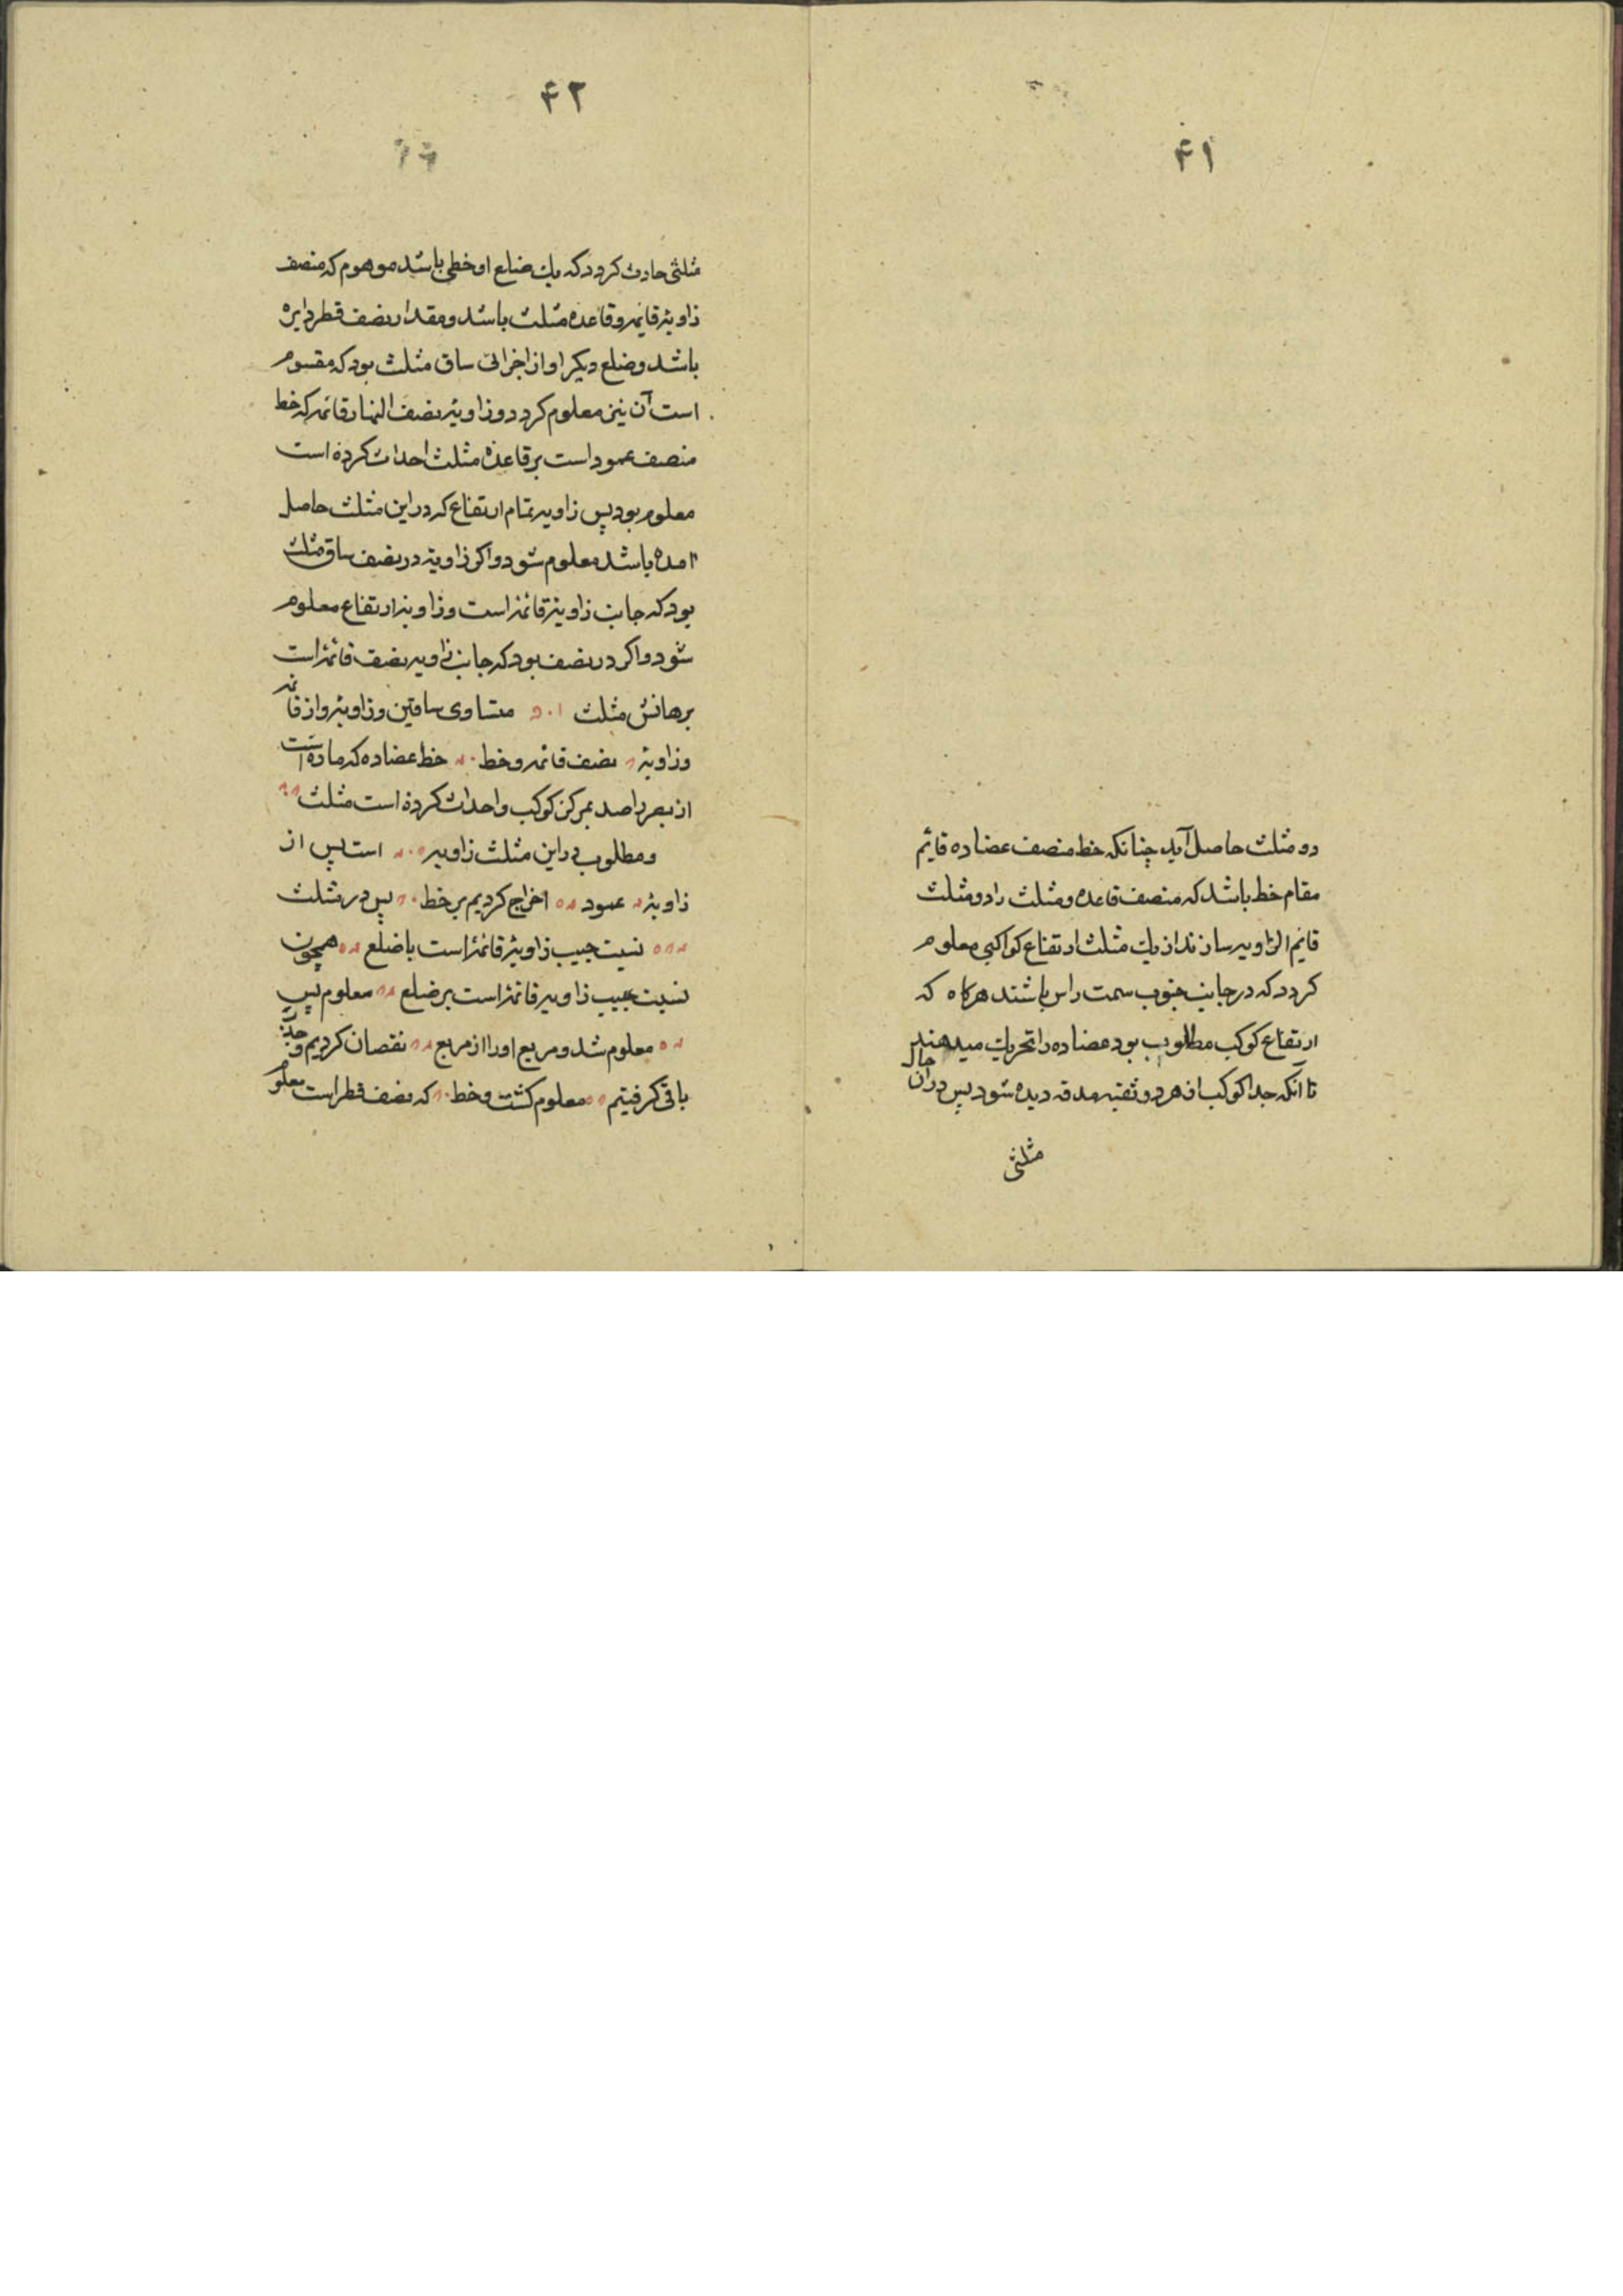 ۴۱
دو مثلث حاصل آید چنانکه خط منصف عضاده قایم
مقام خط باشد که منصف قاعده ومثلث را دو مثلث
قایم الزاویه سازند از یك مثلث ارتفاع کواکبی معلوم
کردد که در جانب جنوب سمت راس باشند هرکاه که
ارتفاع کوکب مطلوب بود عضاده را تحریك میدهند
تا آنکه جدا کوکب از هر دو ثقبه هدفه دیده شود پس در آن حال
مثلثی
۴۲
مثلثی حادث کردد که یك ضلع او خطی باشد موهوم که منصف
زاویه قایمه وقاعده مثلث باشد ومقدار نصف قطر دایره
باشد وضلع دیکر او از اجزائی ساق مثلث بود که مقسوم
است آن نیز معلوم کردد وزاویه نصف النهار قائمه که خط
منصف عمود است بر قاعده مثلث احداث کرده است
معلوم بود پس زاویه تمام ارتفاع که در این مثلث حاصل
امده باشد معلوم شود واکر زاویه در نصف ساق مثلث
بود که جانب زاویه قائمه است وزاویه ارتفاع معلوم
شود واکر در نصف بود که جانب زاویه نصف قائمه است
برهانش مثلث متساوی ساقین وزاویه واز قائمه
وزاویه نصف قائمه وخط خط عضاده که ماده است
از بصر راصد بمرکز کوکب واحداث کرده است مثلث
ومطلوب در این مثلث زاویه است پس از
زاویه عمود اخراج کردیم بر خط پس در مثلث
نسبت جیب زاویه قائمه است با ضلع همچون
نسبت جیب زاویه قائمه است بر ضلع معلوم پس
معلوم شد ومربع او را از مربع نقصان کردیم وجذر
باقی کرفتیم معلوم کشت وخط که نصف قطر است معلوم